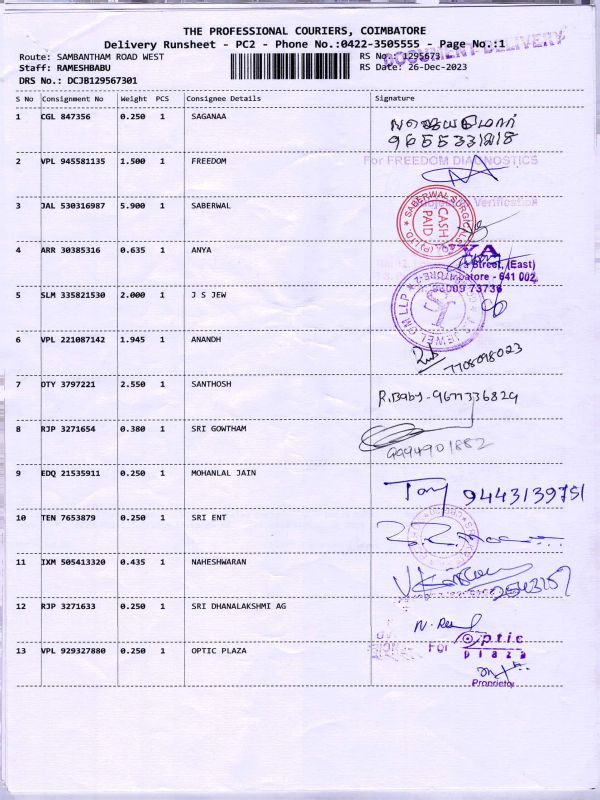 THE PROFESSIONAL COURIERS, COIMBATORE
Delivery Runsheet - PC2 - Phone No.:0422-3505555 - Page No.:1
DOCUMENT DELIVERY
Route: SAMBANTHAM ROAD WEST RS No.: 1295673
Staff: RAMESHBABU RS Date: 26-Dec-2023
DRS No.: DCJB129567301
S No Consignment No Weight PCS Consignee Details Signature
1 CGL 847356 0.250 1 SAGANAA
9655331218
2 VPL 945581135 1.500 1 FREEDOM For FREEDOM DIAGNOSTICS
Subject to Verification
3 JAL 530316987 5.900 1 SABERWAL SABERWAL SURGICALS (P) LTD. CASH PAID
4 ARR 30385316 0.635 1 ANYA
Street, (East)
Coimbatore - 641 002
73736
5 SLM 335821530 2.000 1 J S JEW JEWEL LLP
6 VPL 221087142 1.945 1 ANANDH
7708098023
7 OTY 3797221 2.550 1 SANTHOSH R.Baby - 9677336829
8 RJP 3271654 0.380 1 SRI GOWTHAM
9994901882
9 EDQ 21535911 0.250 1 MOHANLAL JAIN Tony 9443139751
10 TEN 7653879 0.250 1 SRI ENT
11 IXM 505413320 0.435 1 NAHESHWARAN
2543157
12 RJP 3271633 0.250 1 SRI DHANALAKSHMI AG
13 VPL 929327880 0.250 1 OPTIC PLAZA For Optic
plaza
Proprietor